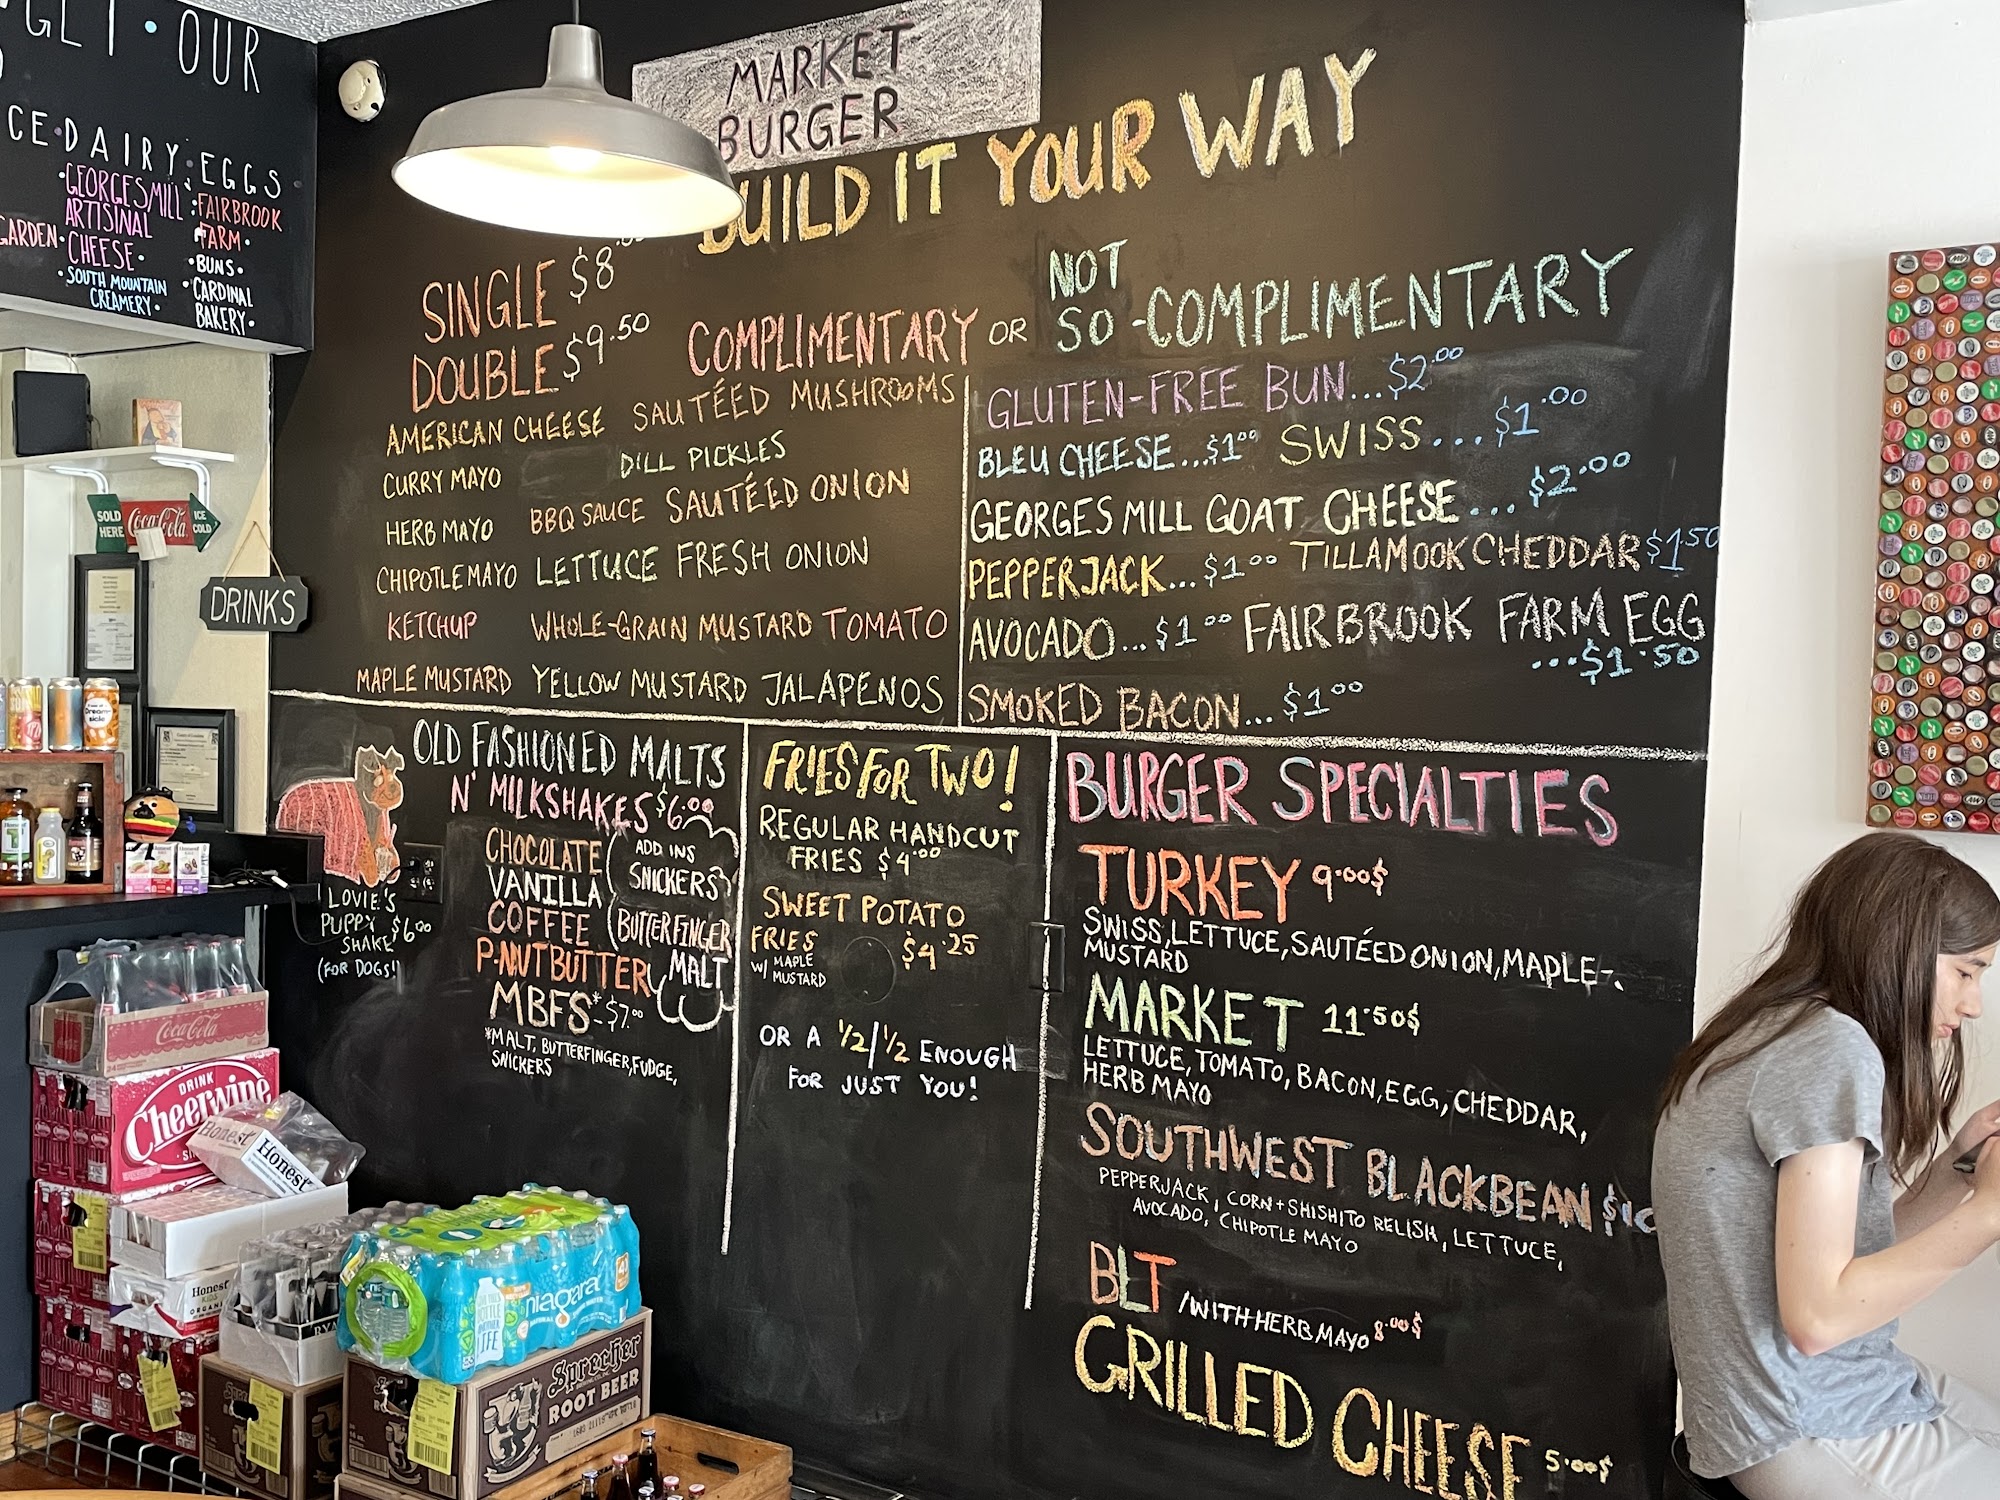 GET • OUR
CE • DAIRY • EGGS
• GEORGES MILL
ARTISINAL
CHEESE •
• SOUTH MOUNTAIN
CREAMERY •
GARDEN •
• FAIRBROOK
FARM •
• BUNS •
• CARDINAL
BAKERY •
MARKET
BURGER
BUILD IT YOUR WAY
SINGLE $8
DOUBLE $9.50
COMPLIMENTARY OR NOT SO-COMPLIMENTARY
AMERICAN CHEESE SAUTÉED MUSHROOMS
CURRY MAYO DILL PICKLES
HERB MAYO BBQ SAUCE SAUTÉED ONION
CHIPOTLE MAYO LETTUCE FRESH ONION
KETCHUP WHOLE-GRAIN MUSTARD TOMATO
MAPLE MUSTARD YELLOW MUSTARD JALAPENOS
GLUTEN-FREE BUN...$2.00
BLEU CHEESE...$1.00 SWISS...$1.00
GEORGES MILL GOAT CHEESE...$2.00
PEPPERJACK...$1.00 TILLAMOOK CHEDDAR $1.50
AVOCADO...$1.00 FAIRBROOK FARM EGG
...$1.50
SMOKED BACON...$1.00
OLD FASHIONED MALTS
N' MILKSHAKES $6.00
CHOCOLATE
VANILLA
COFFEE
P-NUTBUTTER
MBFS* - $7.00
*MALT, BUTTERFINGER, FUDGE,
SNICKERS
ADD INS
SNICKERS
BUTTERFINGER
MALT
LOVIE'S
PUPPY $6.00
SHAKE
(FOR DOGS!)
FRIES FOR TWO!
REGULAR HANDCUT
FRIES $4.00
SWEET POTATO
FRIES $4.25
W/ MAPLE
MUSTARD
OR A 1/2/1/2 ENOUGH
FOR JUST YOU!
BURGER SPECIALTIES
TURKEY 9.00$
SWISS, LETTUCE, SAUTÉED ONION, MAPLE-
MUSTARD
MARKET 11.50$
LETTUCE, TOMATO, BACON, EGG, CHEDDAR,
HERB MAYO
SOUTHWEST BLACKBEAN $10
PEPPERJACK, CORN + SHISHITO RELISH, LETTUCE,
AVOCADO, CHIPOTLE MAYO
BLT /WITH HERB MAYO 8.00$
GRILLED CHEESE 5.00$
SOLD
HERE
Coca-Cola
ICE
COLD
DRINKS
Dream-
sicle
Coca-Cola
DRINK
Cheerwine
Honest
Honest
Honest
KIDS
ORGANIC
niagara
Sprecher
ROOT BEER